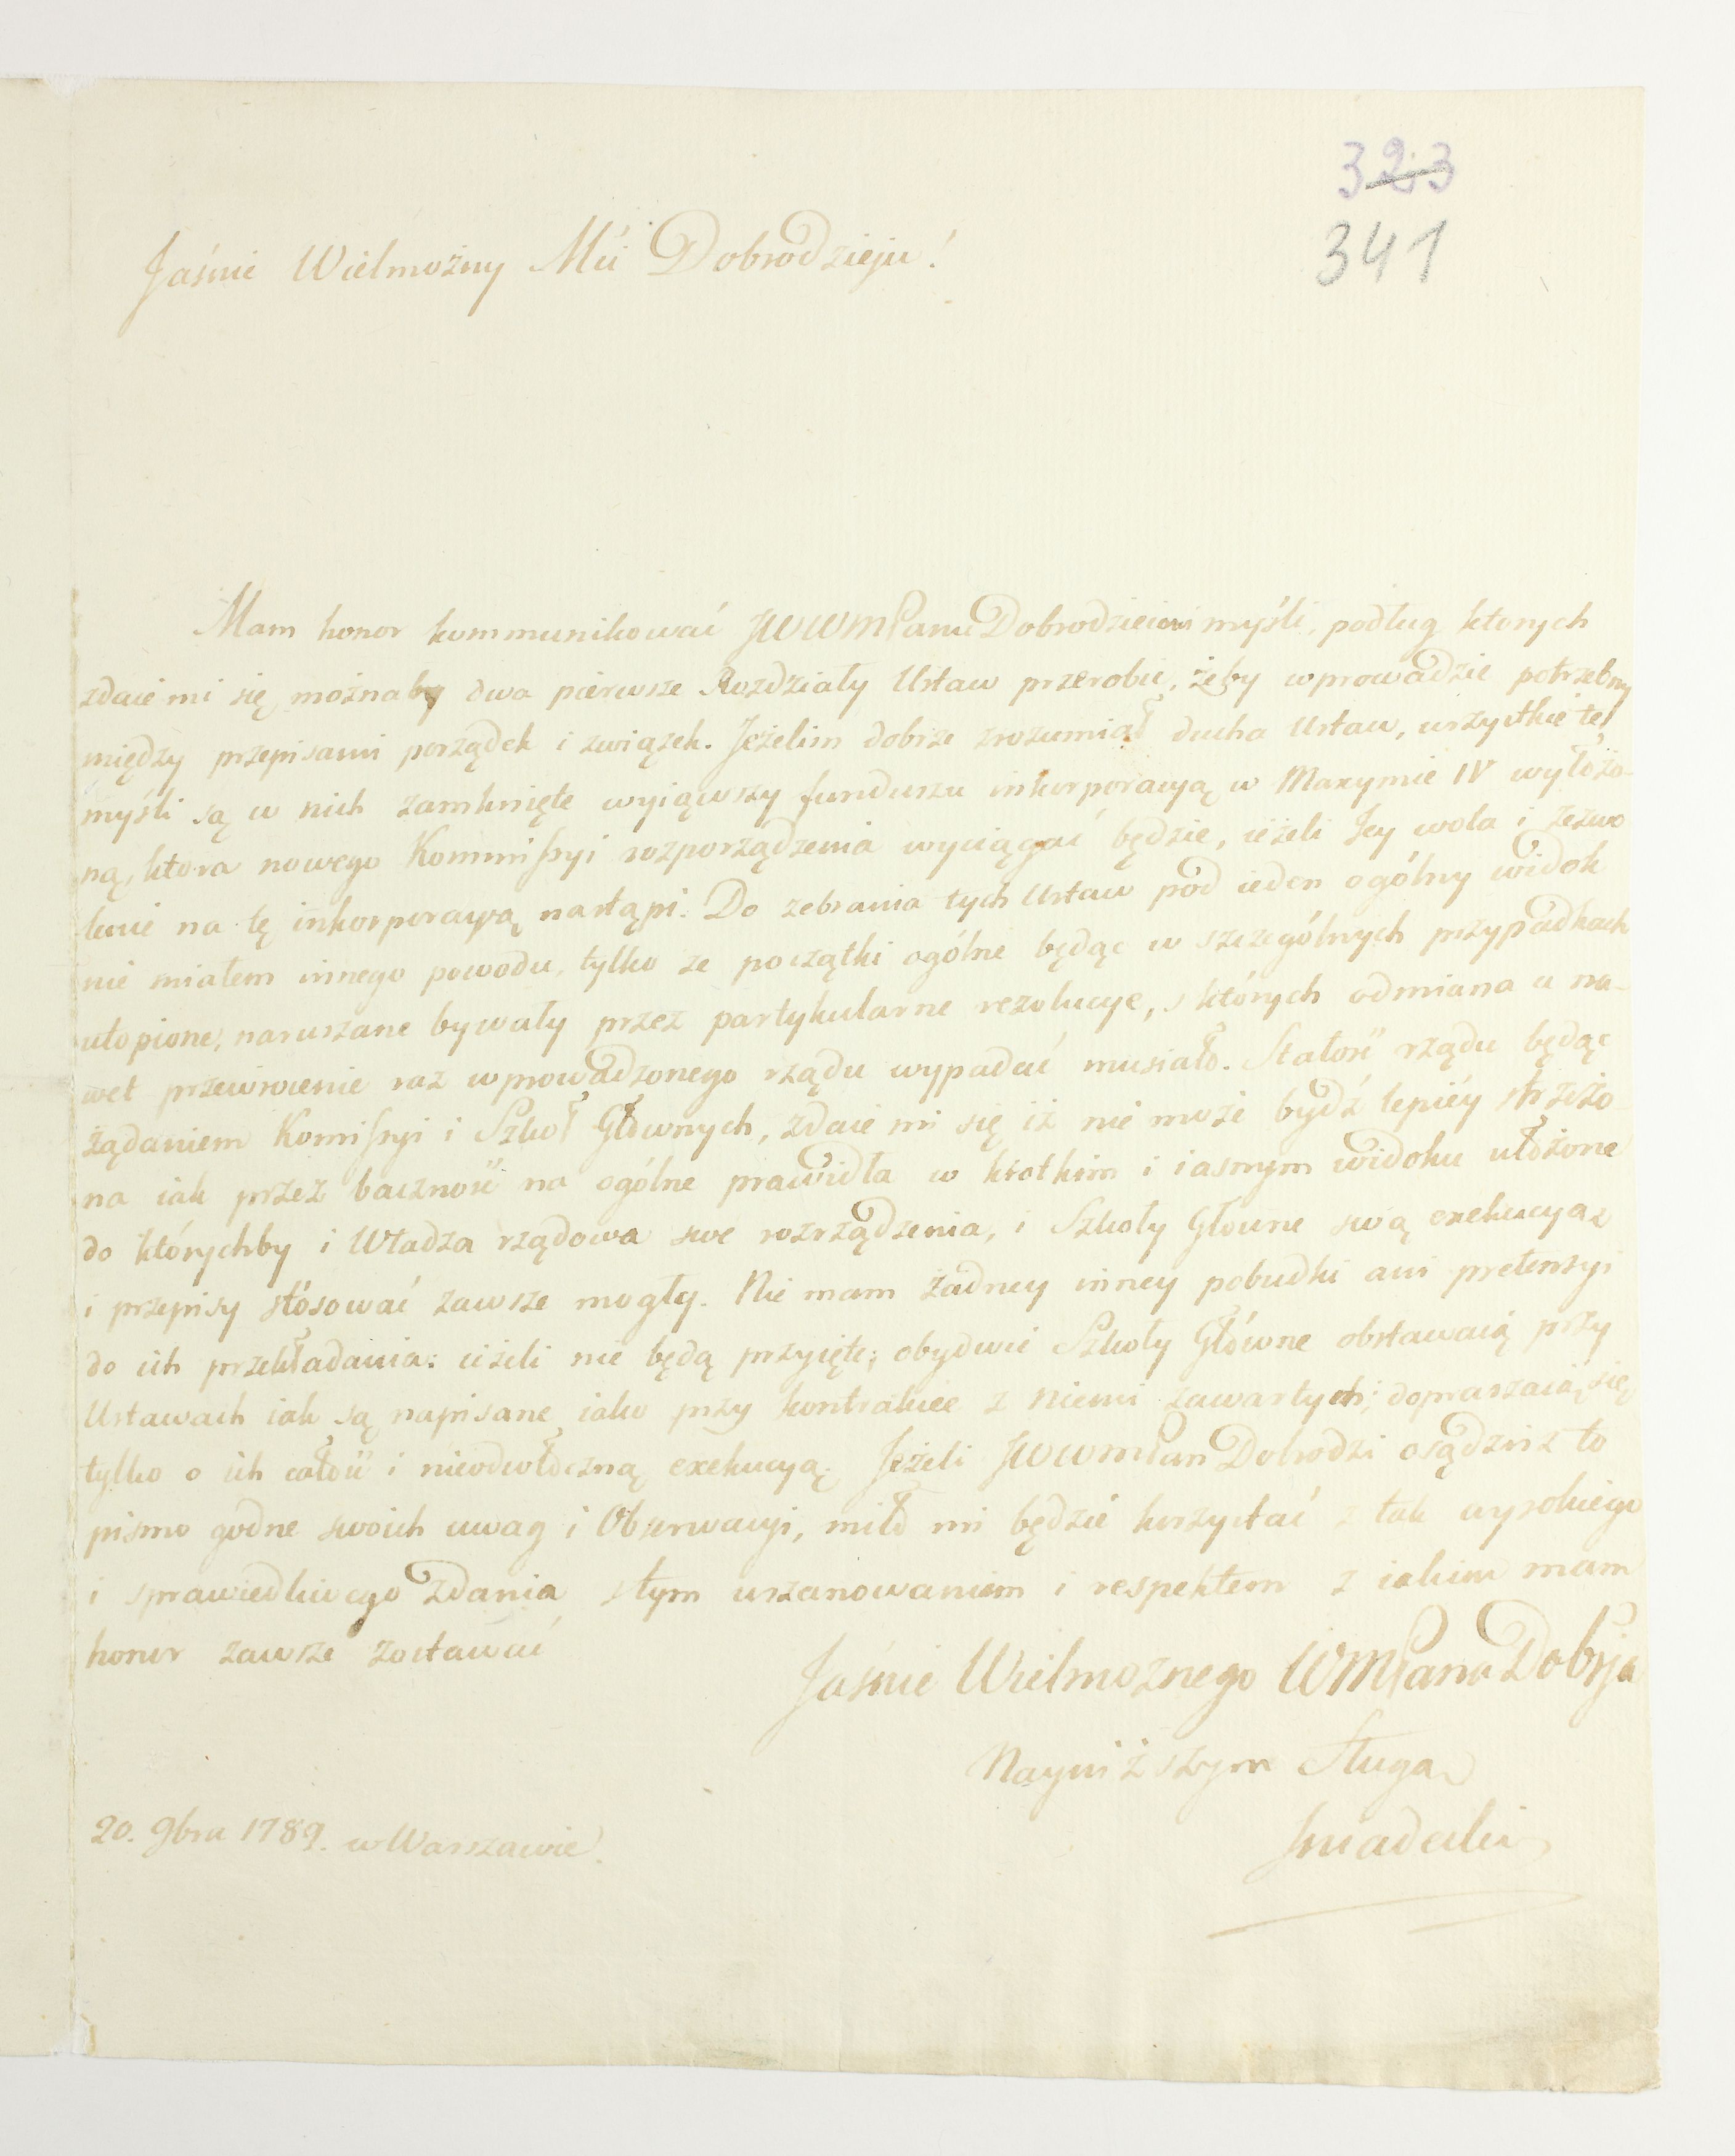 323
341
Jaśnie Wielmożny Mći Dobrodzieju!
Mam honor kommunikować JWWMPanu Dobrodzieiowi myśli, podług ktorych
zdaie mi się możnaby dwa pierwsze Rozdziały Ustaw przerobić, żeby wprowadzić potrzebny
między przepisami porządek i związek. Jeżelim dobrze zrozumiał ducha Ustaw, wszystkie te
myśli są w nich zamknięte wyiąwszy funduszu inkorporacyą w Maxymie IV wyłożo-
ną, ktora nowego Kommissyi rozporządzenia wyciągać będzie, ieżeli Jey wola i zezwo
lenie na tę inkorporacyą nastąpi. Do zebrania tych Ustaw pod ieden ogólny widok
nie miałem innego powodu, tylko ze początki ogólne będąc w szczególnych przypadkach
utopione, naruszane bywały przez partykularne rezolucye, z których odmiana a na-
wet przewrocenie raz wprowadzonego rządu wypadać musiało. Stałość rządu będąc
żądaniem Komissyi i Szkoł Głównych, zdaie mi się iż nie może bydź lepiéy strzeżo-
na iak przez baczność na ogólne prawidła w krotkim i iasnym widoku ułożone
do którychby i Władza rządowa swe rozrządzenia, i Szkoły Głowne swą exekucyą
i przepisy stósować zawsze mogły. Nie mam żadney inney pobudki ani pretensyi
do ich przekładania: ieżeli nie będą przyięte; obydwie Szkoły Główne obstawaią przy
Ustawach iak są napisane iako przy kontrakcie z niemi zawartych; dopraszaią się
tylko o ich całość i nieodwłoczną exekucyą. Jeżeli JWWMPan Dobrodzi osądzisz to
pismo godne swoich uwag i Obserwacyi, miło mi będzie korzystać z tak wysokiego
i sprawiedliwego zdania z tym uszanowaniem i respektem z iakim mam
honor zawsze zostawać
Jaśnie Wielmoznego WMPana Dobrja
Nayniższym Sługą
Sniadecki
20. 9bra 1789. w Warszawie.